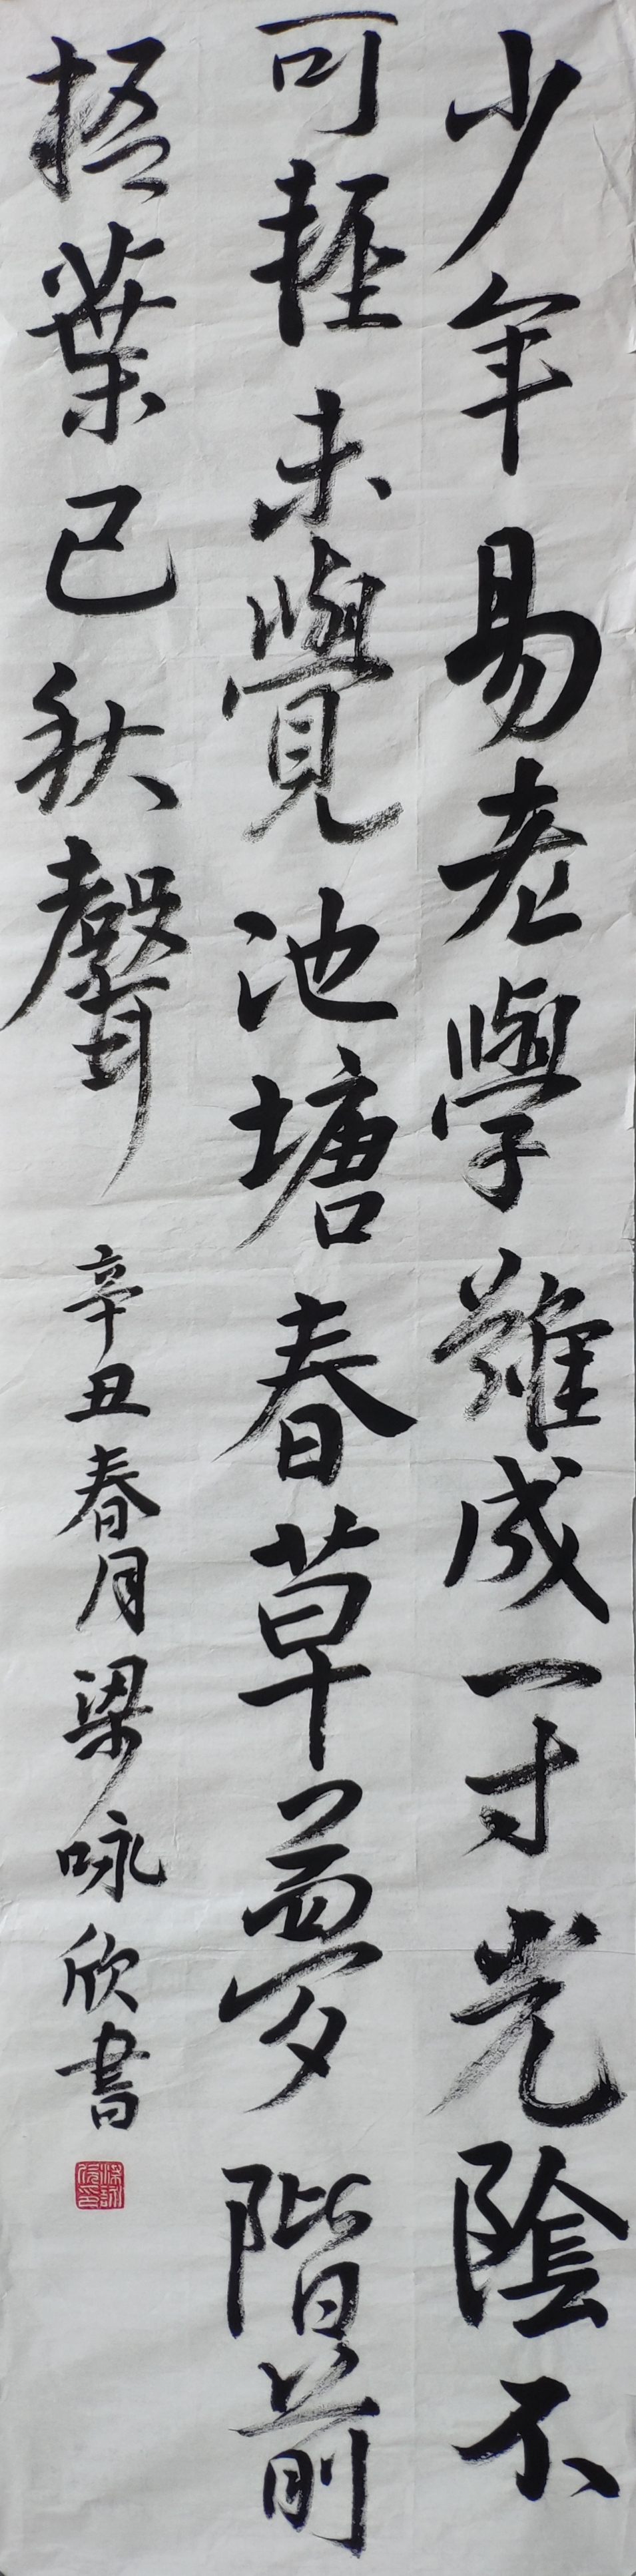 少年易老學難成一寸光陰不
可輕未覺池塘春草夢階前
梧葉已秋聲
辛丑春月梁咏欣書